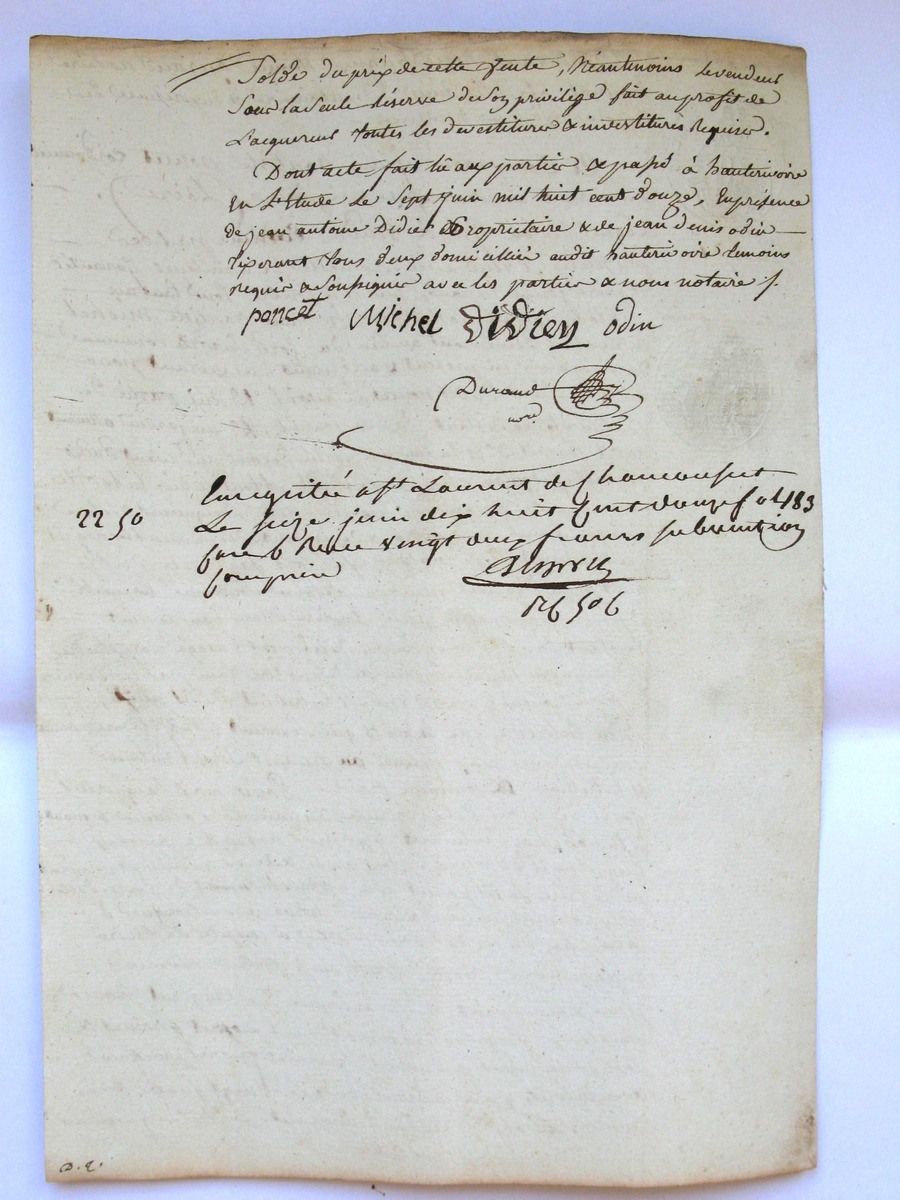 Solde du prix de cette Vente, Néantmoins le vendeur
sous la seule réserve de son privilége fait au profit de
L'acquereur toutes les devestitures & investitures Requises.
Dont acte fait lû aux parties & passé à hauterivoire
En L'Etude Le Sept juin mil huit cent douze, En présence
de jean antoine Didier Propriétaire & de jean denis odin
Tixerant tous deux domiciliés audit hauterivoire temoins
requis & soussignés avec les parties & nous notaire /.
poncet Michel Didier odin
Durand
nore
Enregistré a St Laurent de Chamousset
22 50
Le seize juin dix huit Cent douze fo 183
Reçu vingt deux francs subvention
comprise
D. 2.